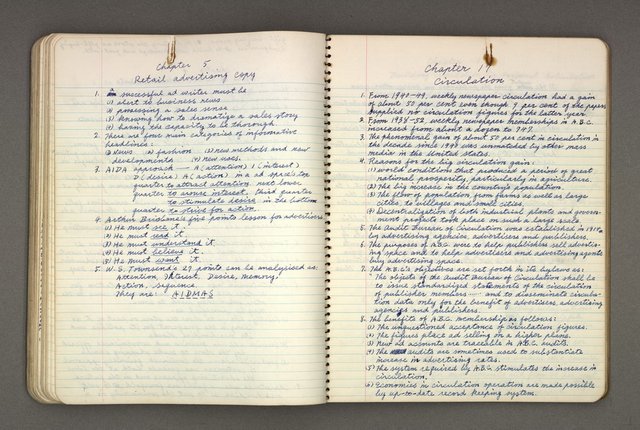 Chapter 5
Retail advertising copy
1. A successful ad writer must be
(1) alert to business news
(2) possessing a sales sense
(3) knowing how to dramatize a sales story
(4) having the capacity to be thorough.
2. There are four main categories of informative
headlines:
(1) news (2) fashion (3) new methods and new
developments (4) new uses.
3. AIDA approach — A (attention) I (interest)
D (desire) A (action) in a ad space: top
quarter to attract attention, next lower
quarter to arouse interest, third quarter
to stimulate desire, in the bottom
quarter to strive for action.
4. Arthur Brisbane's five points lesson for advertisers
(1) He must see it.
(2) He must read it.
(3) He must understand it.
(4) He must believe it.
(5) He must want it.
5. W. S. Townsend's 27 points can be analyized as:
Attention, Interest, Desire, Memory,
Action, Sequence.
They are: AIDMAS
Chapter 17
Circulation
1. From 1940-49, weekly newspaper circulation had a gain
of about 50 per cent even though 9 per cent of the papers
supplied no circulation figures for the latter year.
2. From 1934-52, weekly newspaper memberships in A.B.C.
increased from about a dozen to 947.
3. The phenomenal gain of about 50 per cent in circulation in
the decade since 1940 was unmatched by other mass
media in the United States.
4. Reasons for the big circulation gain:
(1) World conditions that produced a period of great
national prosperity, particularly in agriculture.
(2) The big increase in the country's population.
(3) The flow of population from farms as well as large
cities, to villages and small cities.
(4) Decentralization of both industrial plants and govern-
ment projects took place on such a large scale.
5. The Audit Bureau of Circulation was established in 1914
by advertising agencies, advertisers and publishers.
6. The purposes of A.B.C. were to help publishers sell advertis-
ing space and to help advertisers and advertising agents
buy advertising space.
7. The A.B.C.'s objectives are set forth in its bylaws as:
The objects of the Audit Bureau of Circulation shall be
to issue standardized statements of the circulation
of publisher members — and to disseminate circula-
tion data only for the benefit of advertisers, advertising
agencies and publishers.
8. The benefits of A.B.C. membership as follows:
(1) The unquestioned acceptance of circulation figures.
(2) The figures place ad selling on a higher plane.
(3) New ad accounts are traceable to A.B.C. audits.
(4) The audits are sometimes used to substantiate
increase in advertising rates.
(5) The system required by A.B.C. stimulates the increase in
circulation.
(6) Economies in circulation operation are made possible
by up-to-date record keeping system.